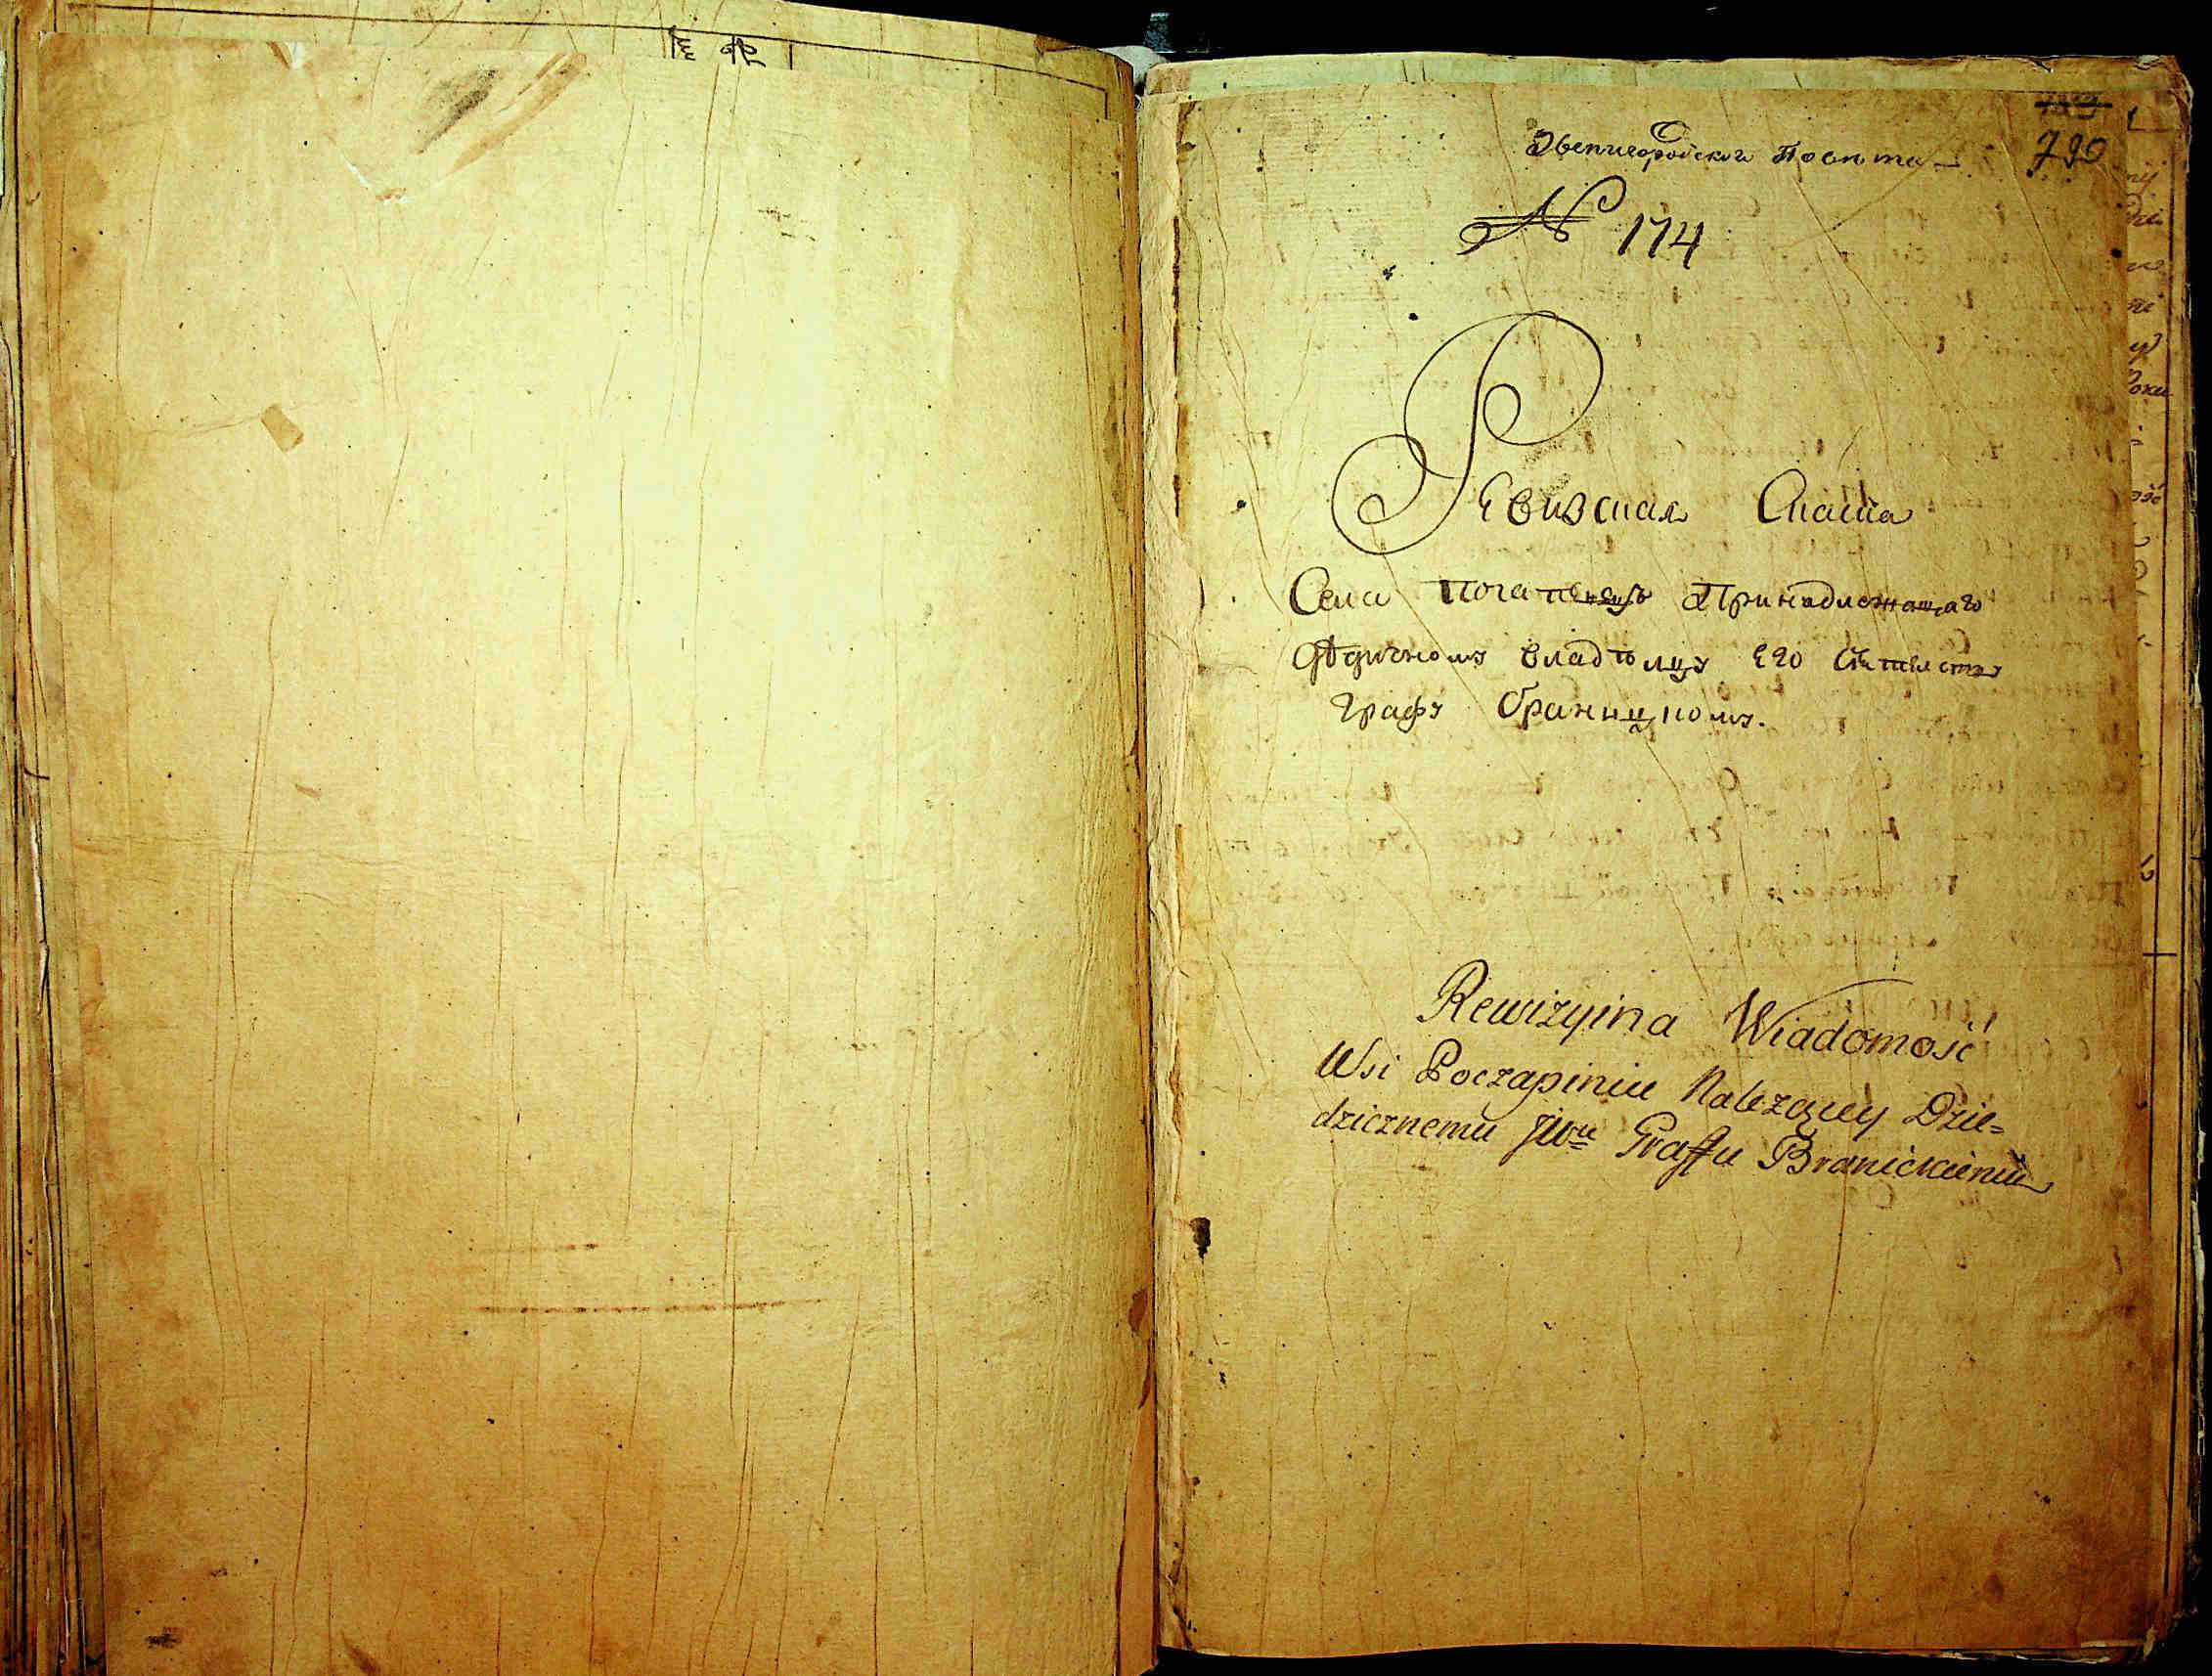 Звенигородскаго Повѣта
790
№ 174
Ревизкая Сказка
Села Почапенецъ Принадлежащаго
Дѣдичному владѣлцу его Сіятелству
Графу Браницкому.
Rewizyina Wiadomość
Wsi Poczapiniec Należącey Dzie=
dzicznemu JWu Graffu Branickiemu